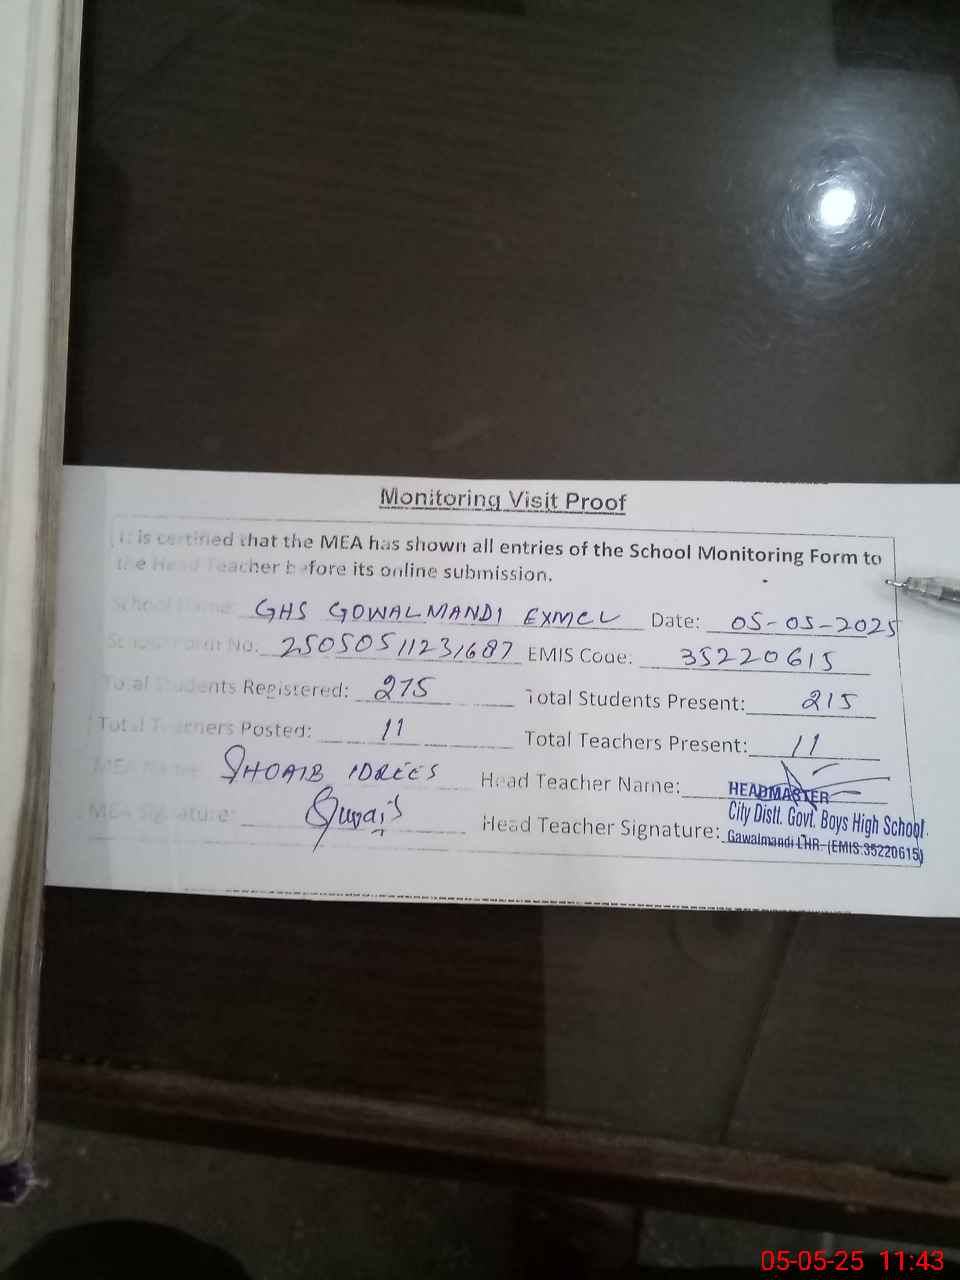 Monitoring Visit Proof
It is certified that the MEA has shown all entries of the School Monitoring Form to
the Head Teacher before its online submission.
School Name: GHS GOWALMANDI EXMCL Date: 05-05-2025
School Form No: 25050511231687 EMIS Code: 35220615
Total Students Registered: 275 Total Students Present: 215
Total Teachers Posted: 11 Total Teachers Present: 11
MEA Name: SHOAIB IDREES Head Teacher Name:
MEA Signature: Head Teacher Signature:
HEADMASTER
City Distt. Govt. Boys High School
Gawalmandi LHR-(EMIS:35220615)
05-05-25 11:43